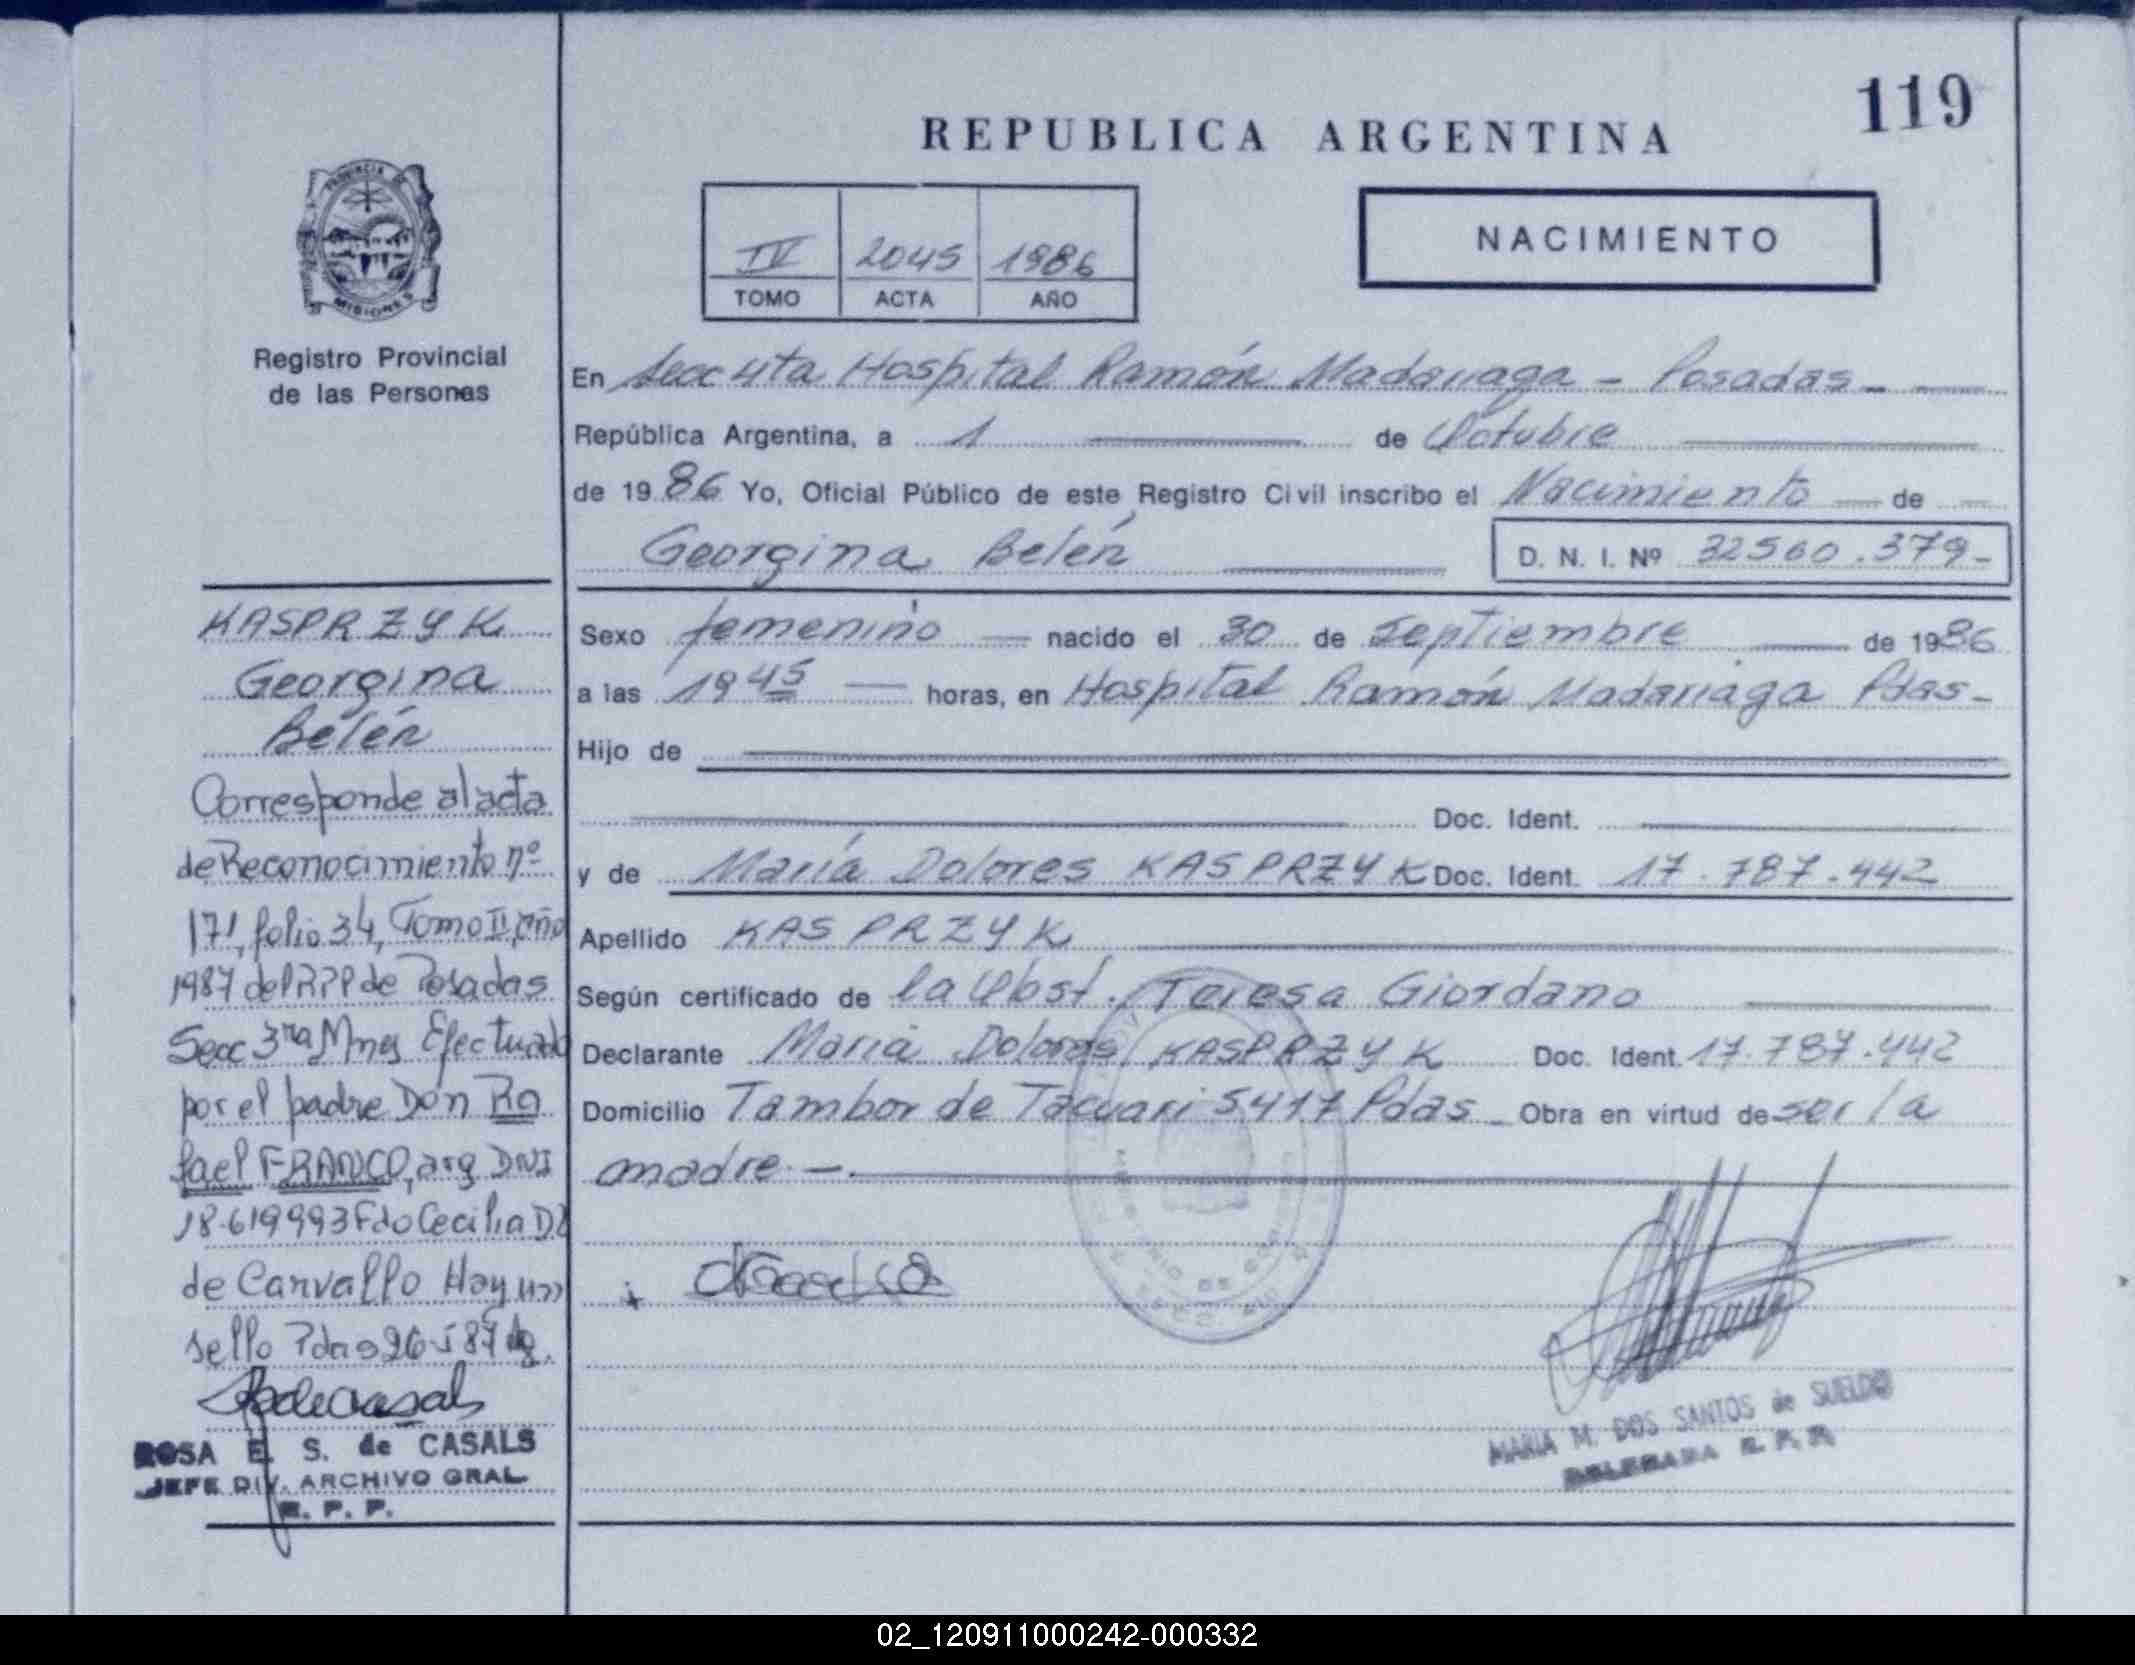 119
REPUBLICA ARGENTINA
IV 2045 1986
TOMO ACTA AÑO
NACIMIENTO
PROVINCIA DE
MISIONES
Registro Provincial
de las Personas
KASPRZYK
Georgina
Belén
Corresponde al acta
de Reconocimiento nº
171, folio 34, Tomo II, año
1987 del RPP de Posadas
Secc 3ra Mnes Efectuado
por el padre Don Ra
fael FRANCO, arg DNI
18.619993 Fdo Cecilia D
de Carvallo Hay un
sello Pdas 26 5 87
ROSA E. S. de CASALS
JEFE DIV. ARCHIVO GRAL
R. P. P.
En Secc 4ta Hospital Ramón Madariaga - Posadas -
República Argentina, a 1 de Octubre
de 1986 Yo, Oficial Público de este Registro Civil inscribo el Nacimiento de
Georgina Belén D. N. I. Nº 32560.379-
Sexo femenino nacido el 30 de Septiembre de 1986
a las 19 45 horas, en Hospital Ramón Madariaga Pdas-
Hijo de
Doc. Ident.
y de María Dolores KASPRZYK Doc. Ident. 17.787.442
Apellido KASPRZYK
Según certificado de la Obst. Teresa Giordano
Declarante María Dolores KASPRZYK Doc. Ident. 17.787.442
Domicilio Tambor de Tacuari 5417 Pdas - Obra en virtud de ser la
madre. -
MARIA M. DOS SANTOS de SUELDO
DELEGADA R. P. P.
02_120911000242-000332